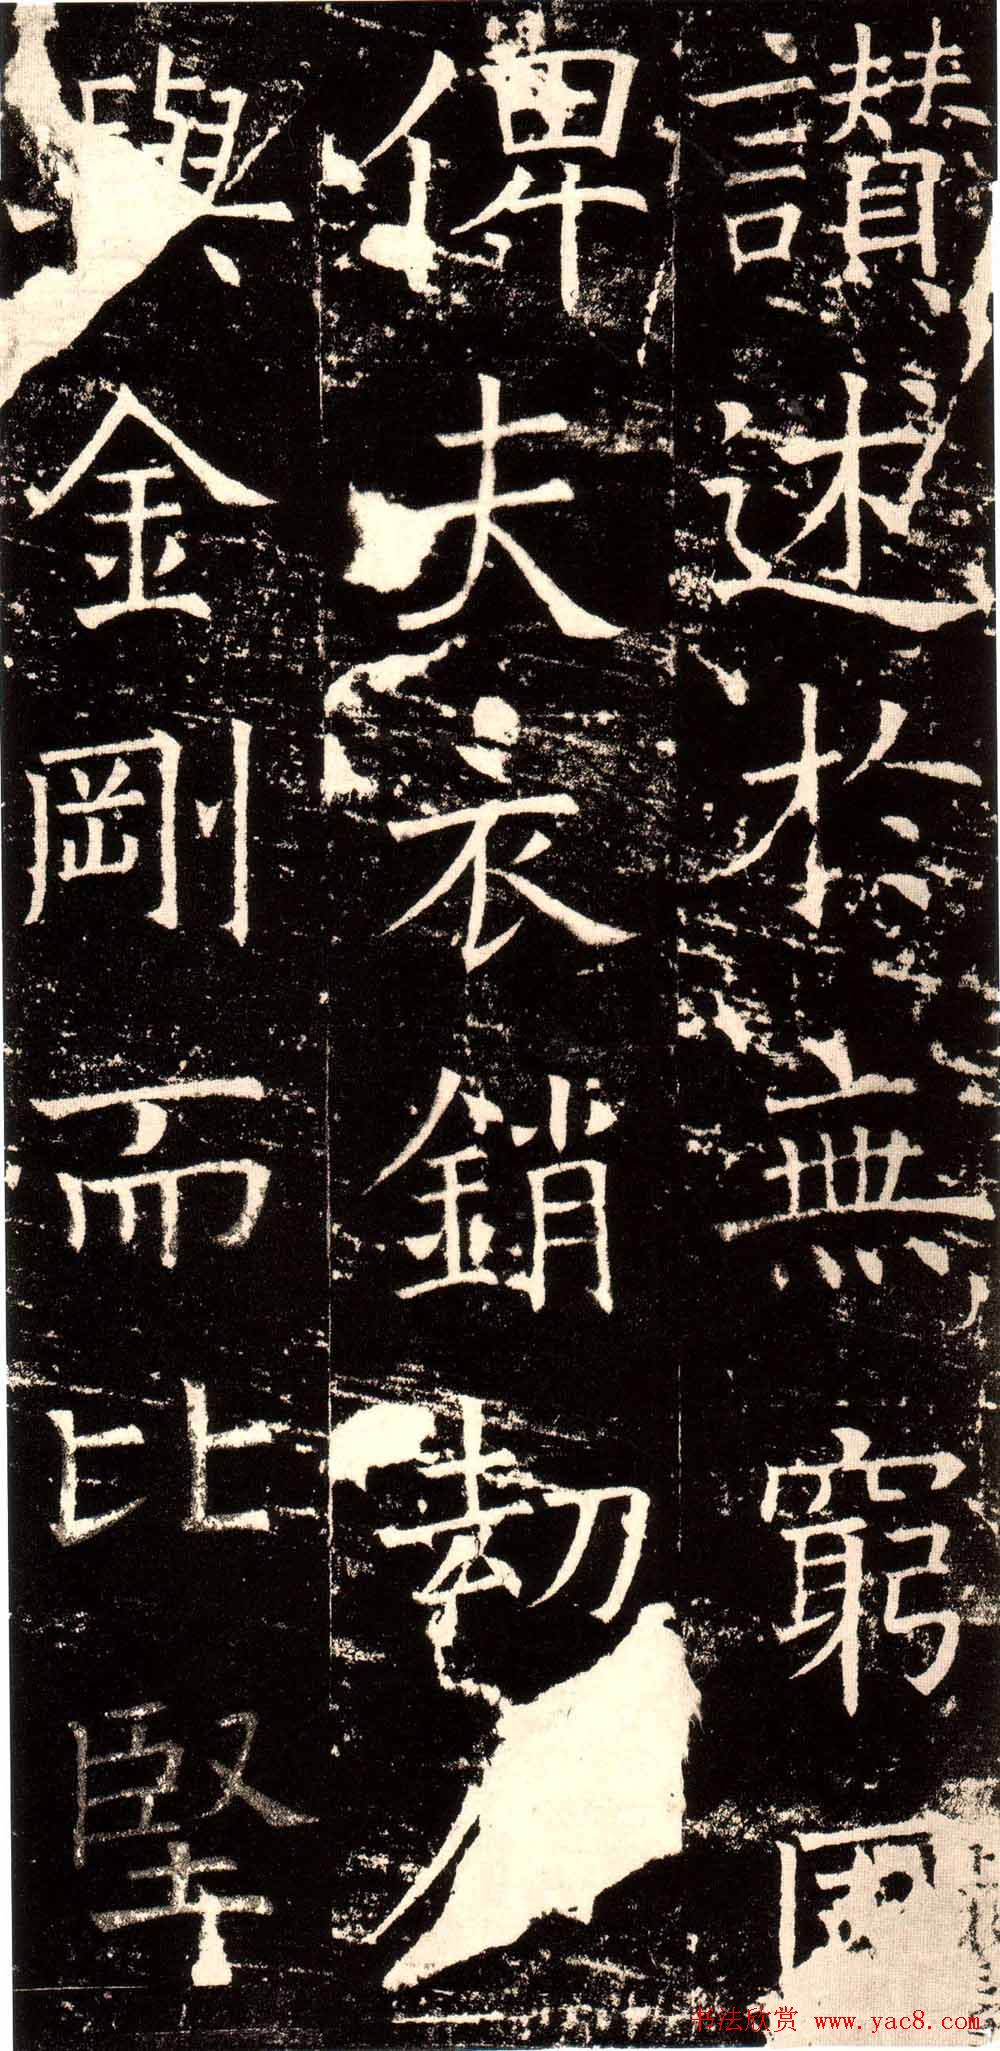 讃述於無窮
俾夫衣銷刦
與金剛而比堅
书法欣赏 www.yac8.com